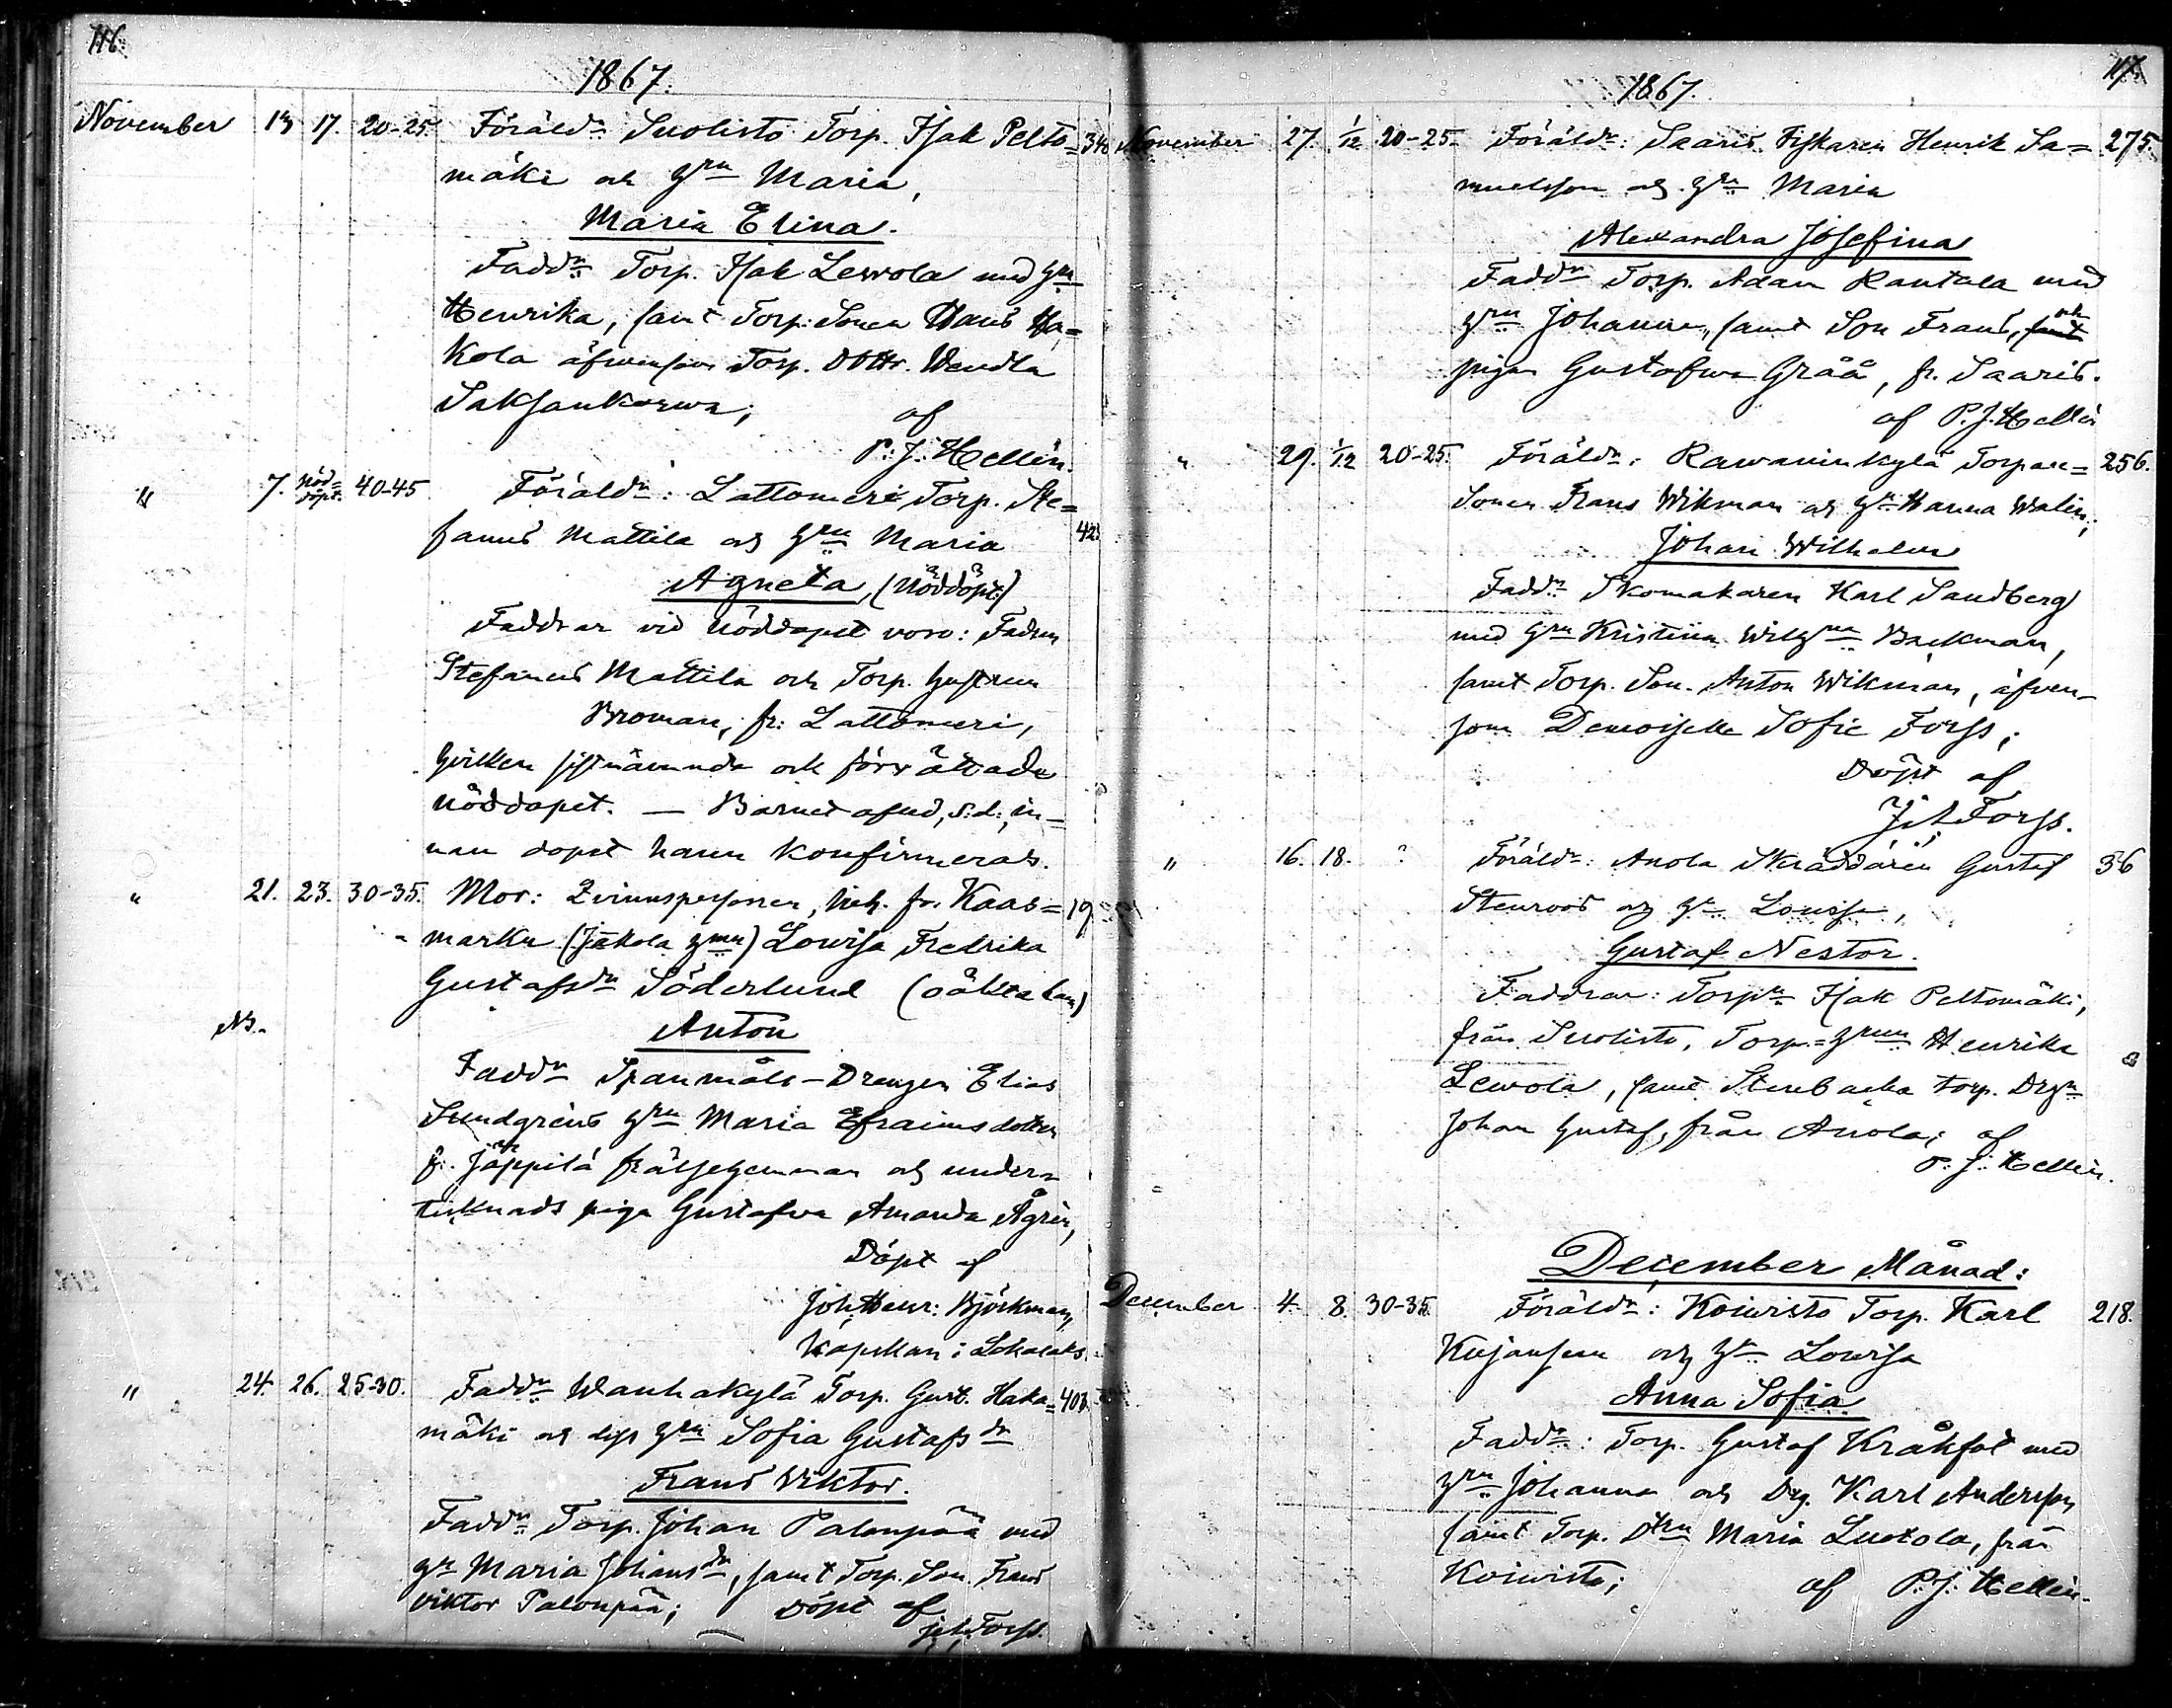 116.
1867.
November 13 17. 20-25. Föräldr Suolisto Torp. Isak Pelto= 340
mäki och Hru Maria,
Maria Elina.
Faddr Torp. Isak Lewola med Hru
Henrika, samt Torp: Sonen Hans Ha=
kola äfvensom Torp. Dottr. Wendla
Saksankorwa; af
P. J. Hellén.
" 7. Nöd=döpt. 40-45 Föräldr: Lattomeri Torp. Ste=
fanus Mattila och Hru Maria 42
Agneta, (Nöddöpt)
Faddrar vid nöddopet voro: Fadren
Stefanus Mattila och Torp. Hustrun
Broman, fr. Lattomeri,
hvilken sistnämnda ock förrättade
nöddopet. — Barnet afled, s. d., in=
nan dopet hann konfirmeras.
" 21. 23. 30-35. Mor: Qvinnspersonen, fr. Kaas= 19
marku (Jakola) Lovisa Fredrika
Gustafsdr Söderlund (oäkta barn)
NB. Anton
Faddr Spanmåls-Drengen Elias
Sundgréns Hru Maria Efraimsdotter
fr. Jäppilä frälsehemman och under=
tecknads piga Gustafva Amanda Ågrén,
Döpt af
Joh. Henr: Björkman,
Kapellan i Lokalaks.
" 24. 26. 25-30. Faddr Wanhakylä Torp. Gust. Haka= 403.
mäki och dess Hru Sofia Gustafsdr
Frans Viktor.
Faddr Torp. Johan Palonpää med
Hr Maria Johansdr, samt Torp. Son. Frans
Viktor Palonpää; Döpt af
J. A. Forss.
117.
1867.
November 27. 1/12 20-25. Föräldr: Saaris Fiskaren Henrik Sa= 275.
muelsson och Hru Maria
Alexandra Josefina
Faddr Torp. Adam Rantala med
Hru Johanna, samt Son Frans, samt och
pigan Gustafva Gråå, fr. Saaris.
af P. J. Hellén
" 29. 1/12 20-25. Föräldr: Rawaninkylä Torpare= 256.
Sonen Frans Wikman och Hr Hanna Walin;
Johan Wilhelm
Faddr Skomakaren Karl Sandberg
med Hru Kristina Backman,
samt Torp. Son. Anton Wikman, äfven-
som Demoiselle Sofie Forss;
Döpt af
J. A. Forss.
" 16. 18. ? Föräldr: Anola Skräddaren Gustaf 36
Stenroos och Hr Lovisa,
Gustaf Nestor.
Faddrar: Torpn Isak Peltomäki,
från Suolisto, Torp.=Hrun Henrika
Lewola, samt Stenbacka torp. Drgn
Johan Gustaf, från Anola; af
P. J. Hellén.
December Månad:
December 4. 8. 30-35. Föräldr: Koivisto Torp. Karl 218.
Kujansuu och Hr Lovisa
Anna Sofia.
Faddr: Torp. Gustaf Kråkfot med
Hru Johanna och Drg. Karl Andersson,
samt Torp. Dtrn Maria Luotola, från
Koivisto; af P. J. Hellén.